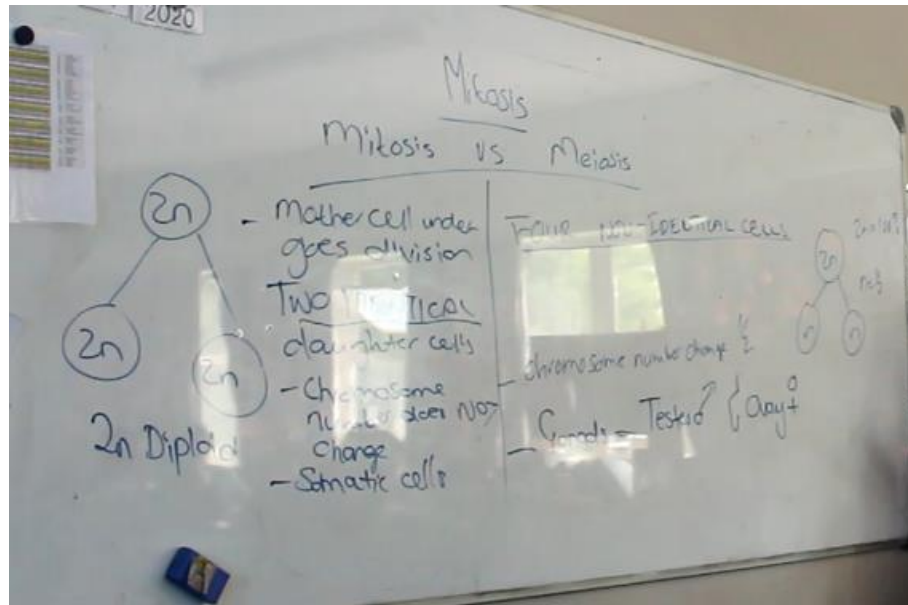 2020
Mitosis
Mitosis vs Meiosis
2n
2n
2n
2n Diploid
- Mother cell under
goes division
TWO IDENTICAL
daughter cells
- Chromosome
number does NOT
change
- Somatic cells
FOUR NON-IDENTICAL CELLS
2n
n
n
- Chromosome number change ½
- Gonads - Testis ♂ { Ovary ♀